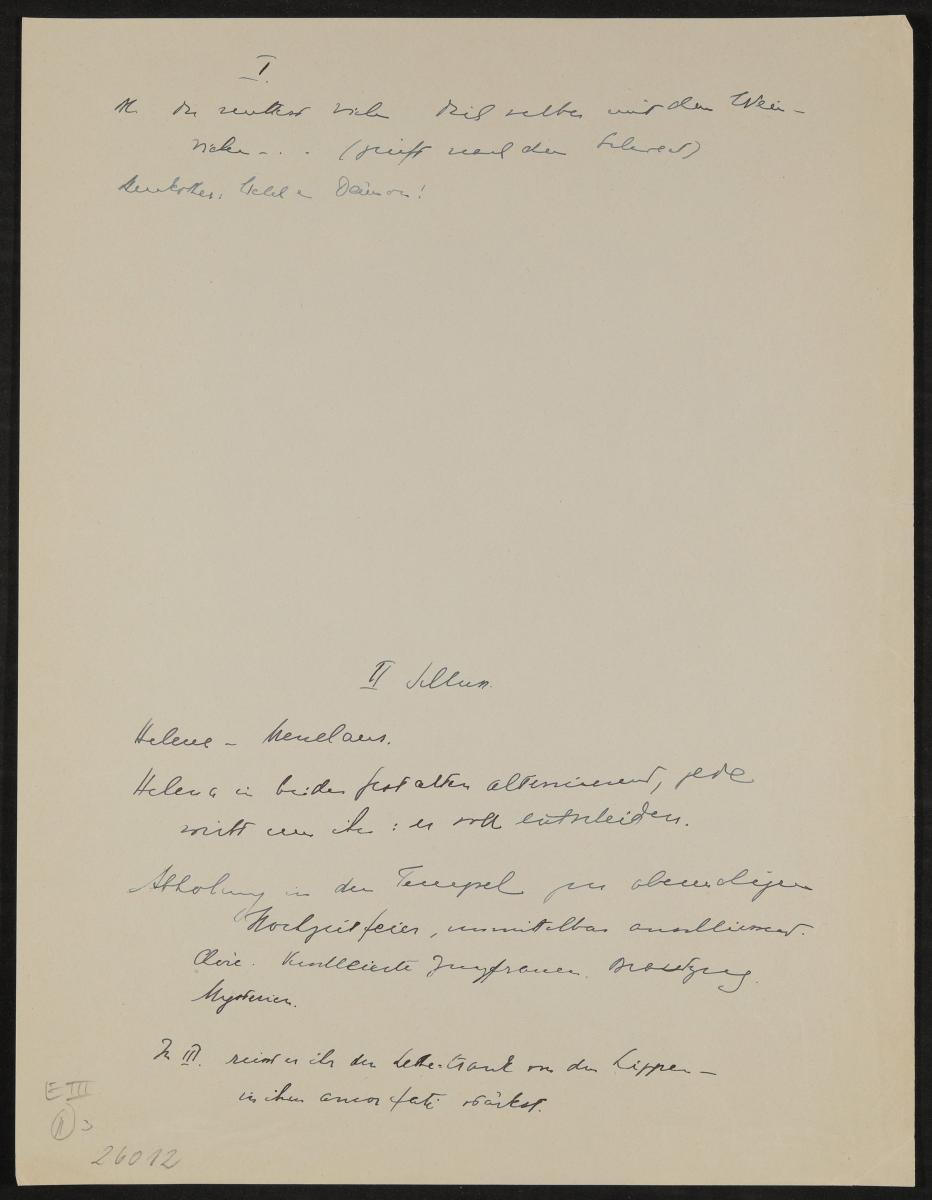 I.
M. Du
den Wein –
. . . (greift nach dem Schwert)
Dämon!
II Schluss.
Helene – Menelaus.
Helena in beiden Gestalten alternierend, jede
wirbt um ihn: er soll entscheiden.
Abholung in den Tempel zur abendlichen
Hochzeitfeier, unmittelbar anschliessend.
Chöre. Verschleierte Jungfrauen. Brautzug.
Mysterien.
In III. reisst er ihr den Lethe-trank von den Lippen –
in ihm amor fati stärkst.
E III
3
26012